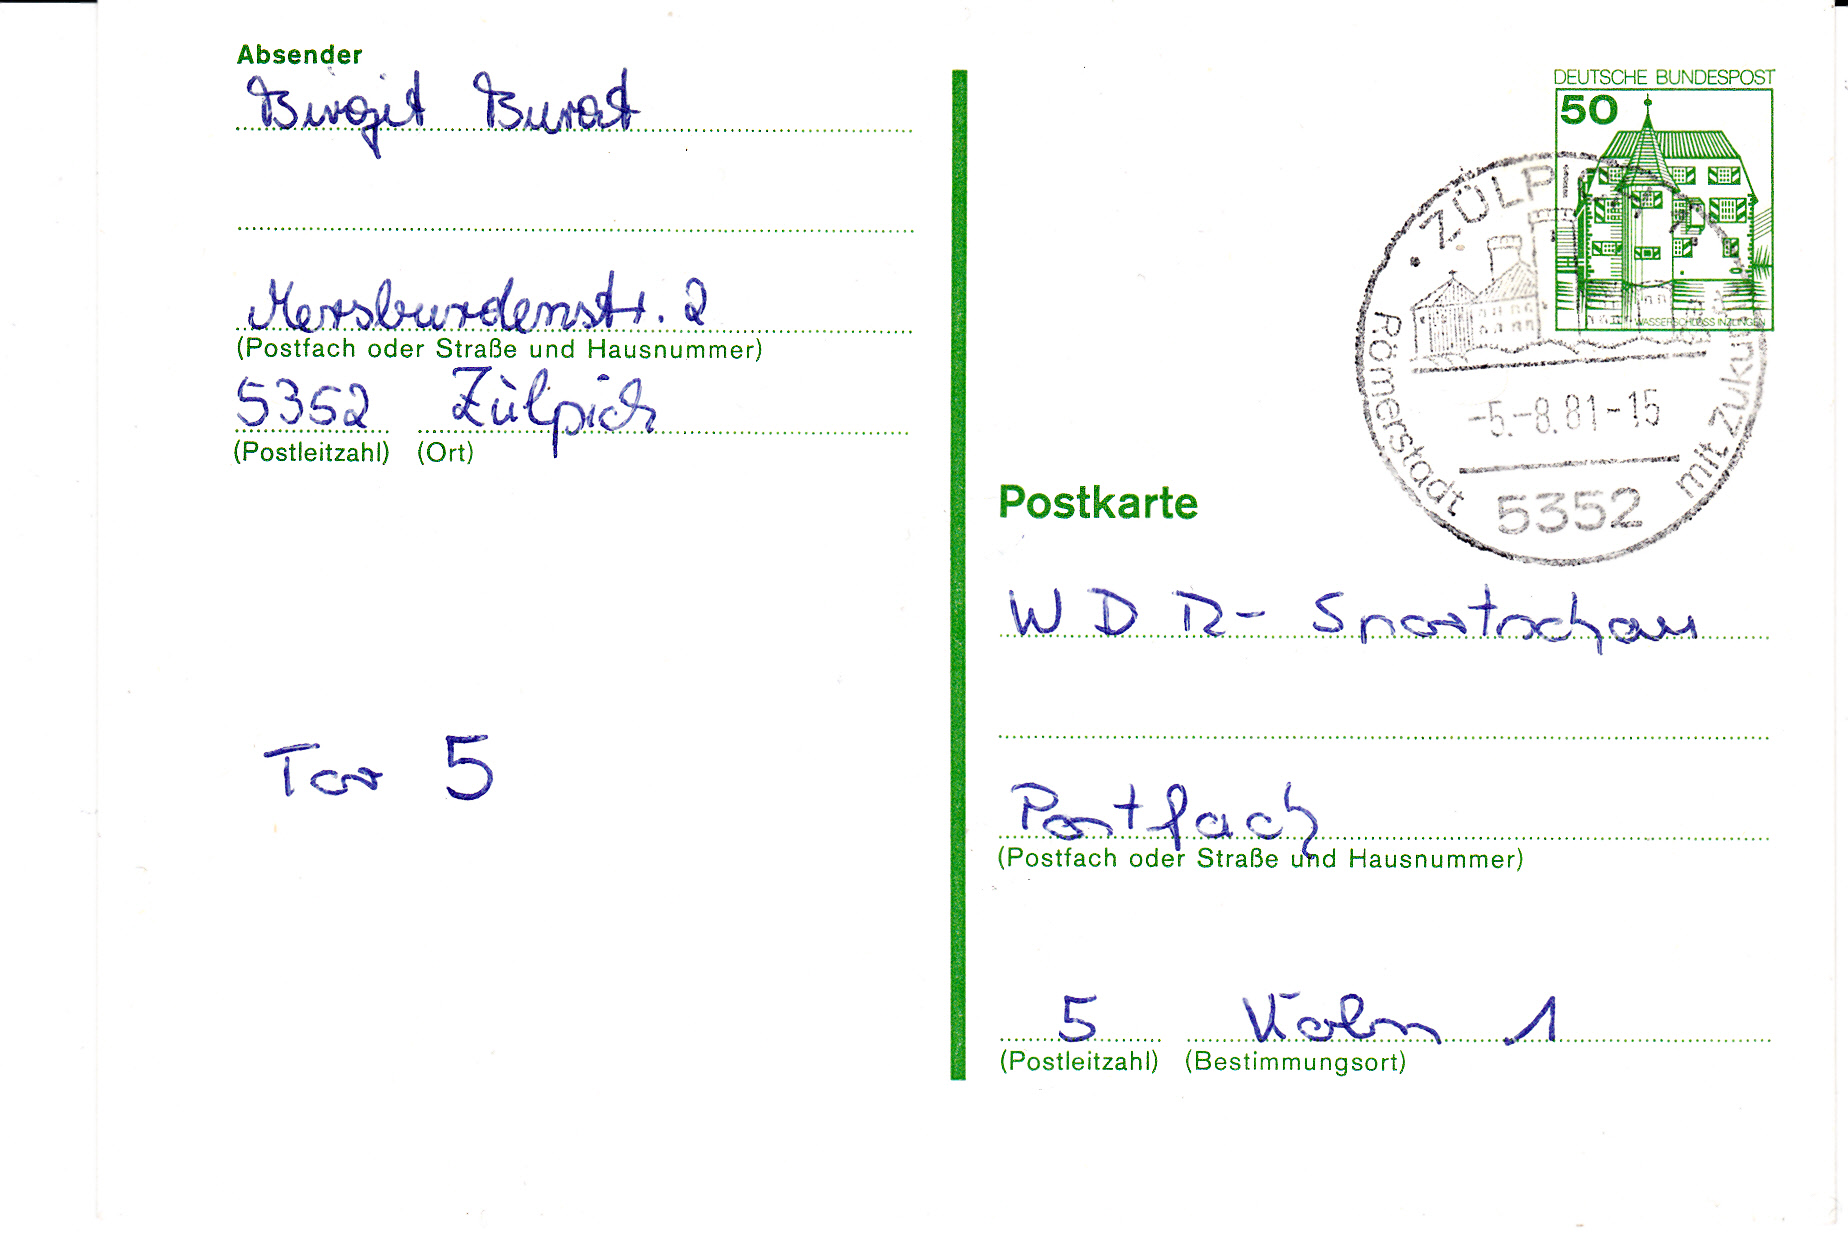 Absender
Birgit Burat
Mersburdenstr. 2
(Postfach oder Straße und Hausnummer)
5352 Zülpich
(Postleitzahl) (Ort)
Tor 5
DEUTSCHE BUNDESPOST
50
WASSERSCHLOSS INZLINGEN
ZÜLPICH
Römerstadt mit Zukunft
-5.-8.81-15
5352
Postkarte
WDR- Sportschau
Postfach
(Postfach oder Straße und Hausnummer)
5 Köln 1
(Postleitzahl) (Bestimmungsort)